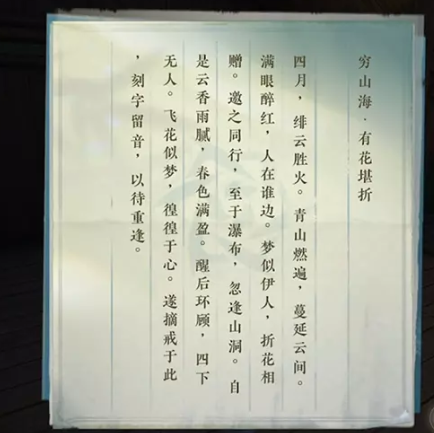 穷山海·有花堪折
四月，绯云胜火。青山燃遍，蔓延云间。
满眼醉红，人在谁边。梦似伊人，折花相
赠。邀之同行，至于瀑布，忽逢山洞。自
是云香雨腻，春色满盈。醒后环顾，四下
无人。飞花似梦，徨徨于心。遂摘戒于此
，刻字留音，以待重逢。